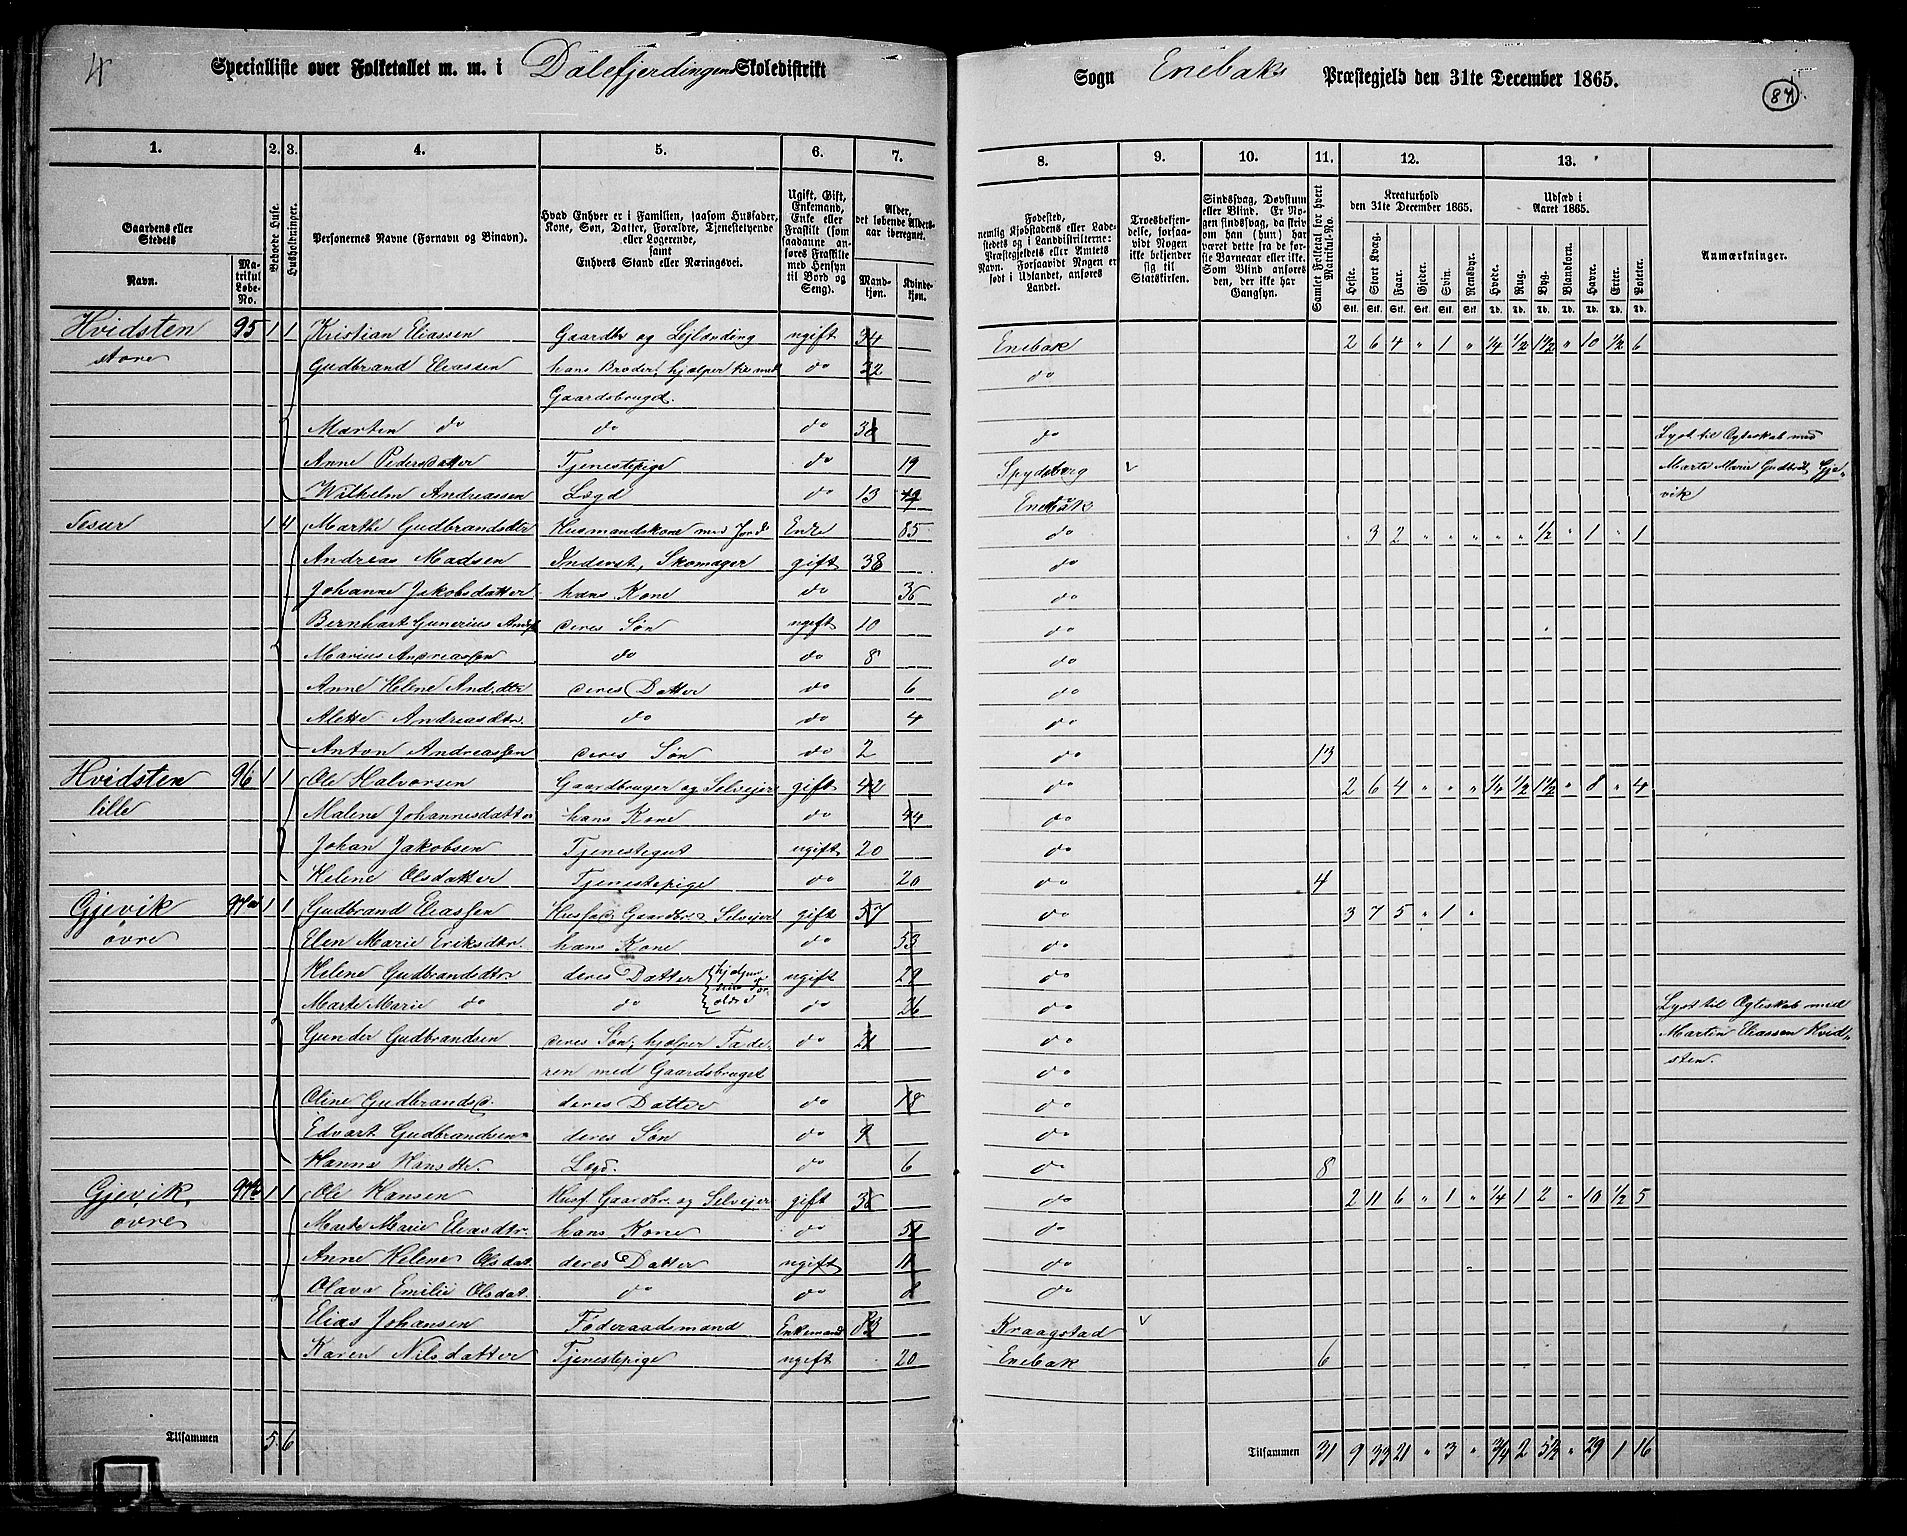 4
Specialliste over Folketallet m. m. i Dalefjerdingens Skoledistrikt
Sogn Enebaks Præstegjeld den 31te December 1865.
84
1. 2. 3. 4. 5. 6. 7. 8. 9. 10. 11. 12. 13.
Gaardens eller Stedets
Navn.
Matrikul Løbe-No.
Beboede Huse.
Husholdninger.
Personernes Navne (Fornavn og Binavn).
Hvad Enhver er i Familien, saasom Husfader, Kone, Søn, Datter, Forældre, Tjenestetyende eller Logerende, samt Enhvers Stand eller Næringsvei.
Ugift, Gift, Enkemand, Enke eller Fraskilt (som saadanne anføres Fraskilte med Hensyn til Bord og Seng).
Alder, det løbende Aldersaar iberegnet.
Mandkjøn. Kvindekjøn.
Fødested, nemlig Kjøbstadens eller Ladestedets og i Landdistrikterne: Præstegjeldets eller Amtets Navn. Forsaavidt Nogen er født i Udlandet, anføres Landet.
Troesbekjendelse, forsaavidt Nogen ikke bekjender sig til Statskirken.
Sindssvag, Døvstum eller Blind. Er Nogen sindssvag, da skriv om han (hun) har været dette fra de første Barneaar eller ikke. Som Blind anføres den, der ikke har Gangsyn.
Samlet Folketal for hvert Matrikul-No.
Kreaturhold den 31te December 1865.
Heste. Stort Kvæg. Faar. Gjeder. Svin. Rensdyr.
Stk. Stk. Stk. Stk. Stk. Stk.
Udsæd i Aaret 1865.
Hvede. Rug. Byg. Blandkorn. Havre. Erter. Poteter.
Td. Td. Td. Td. Td. Td. Td.
Anmærkninger.
Hvidsten 95 1 1 Kristian Eliassen Gaardbr og Leilænding ugift 34 Enebak 2 6 4 " 1 " 1/4 1/2 1 1/2 " 10 1/2 6
store Gudbrand Eliassen hans Broder, hjælper til med do 32 do
Gaardsbrugd.
Marten do do do do Lyst til Ægteskab med
Anne Pedersdatter Tjenestepige do 19 Spydeberg Marte Marie Gudbrd. Gje-
Wilhelm Andreassen Lægd do 13 Enebak vik
1 4 Marthe Gudbrandsdtr Husmandskone med Jord Enke 85 do " 3 2 " " " " " 1/2 " 1 " 1
Andreas Madsen Inderst, Skomager gift 38 do
Johanne Jakobsdatter hans Kone do 36 do
Bernhart Gunerius Andr deres Søn ugift 10 do
Marius Andreassen do do 8 do
Anne Helene And.dtr deres Datter do 6 do
Alette Andreasdtr. do do 4 do
Anton Andreassen deres Søn do 2 do 13
Hvidsten 96 1 1 Ole Halvorsen Gaardbruger og Selveier gift 42 do 2 6 4 " " " 1/4 1/2 1 1/2 " 8 " 4
lille Malene Johannesdatter hans Kone do 44 do
Johan Jakobsen Tjenestegut ugift 20 do
Helene Olsdatter Tjenestepige do 20 do 4
Gjevik 97a 1 1 Gudbrand Eliassen Husfad Gaardbr. Selveier gift 57 do 3 7 5 " 1 "
øvre Elen Marie Eriksdtr. hans Kone do 53 do
Helene Gudbrandsdtr. deres Datter hjælper ugift 29 do
sine For-
Marte Marie do do ældre do 26 do Lyst til Ægteskab med
Gunder Gudbrandsen deres Søn, hjælper Fade- do 21 do Martin Eliassen Hvid-
ren med Gaardsbruget do sten.
Oline Gudbrandsd. deres Datter do 18 do
Edvart Gudbrandsen deres Søn do 9 do
Hanna Hansdtr. Lægd. do 6 do 8
Gjevik, 97b 1 1 Ole Hansen Husf. Gaardbr. og Selveier gift 36 do 2 11 6 " 1 " 1/4 1 2 " 10 1/2 5
øvre Marte Marie Eliasdtr. hans Kone do do
Anne Helene Olsdat. deres Datter ugift 11 do
Olava Emilie Olsdat. do do do
Elias Johansen Føderaadsmand Enkemand 83 Kraagstad
Karen Nilsdatter Tjenestepige ugift 20 Enebak 6
Tilsammen 5 6
Tilsammen 31 9 33 21 " 3 " 3/4 2 5 1/2 " 29 1 16